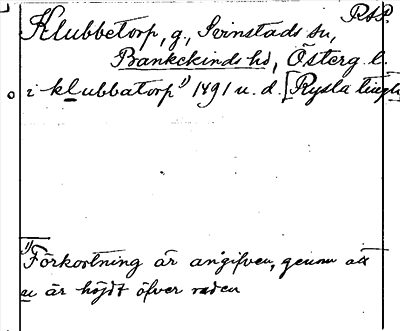 RAP.
Klubbetorp, g., Svinstads sn,
Bankekinds hd, Österg. l.
i klubbatorp 1) 1491 u. d. [Rysla
1) Förkortning är angifven, genom att
u är höjdt öfver raden